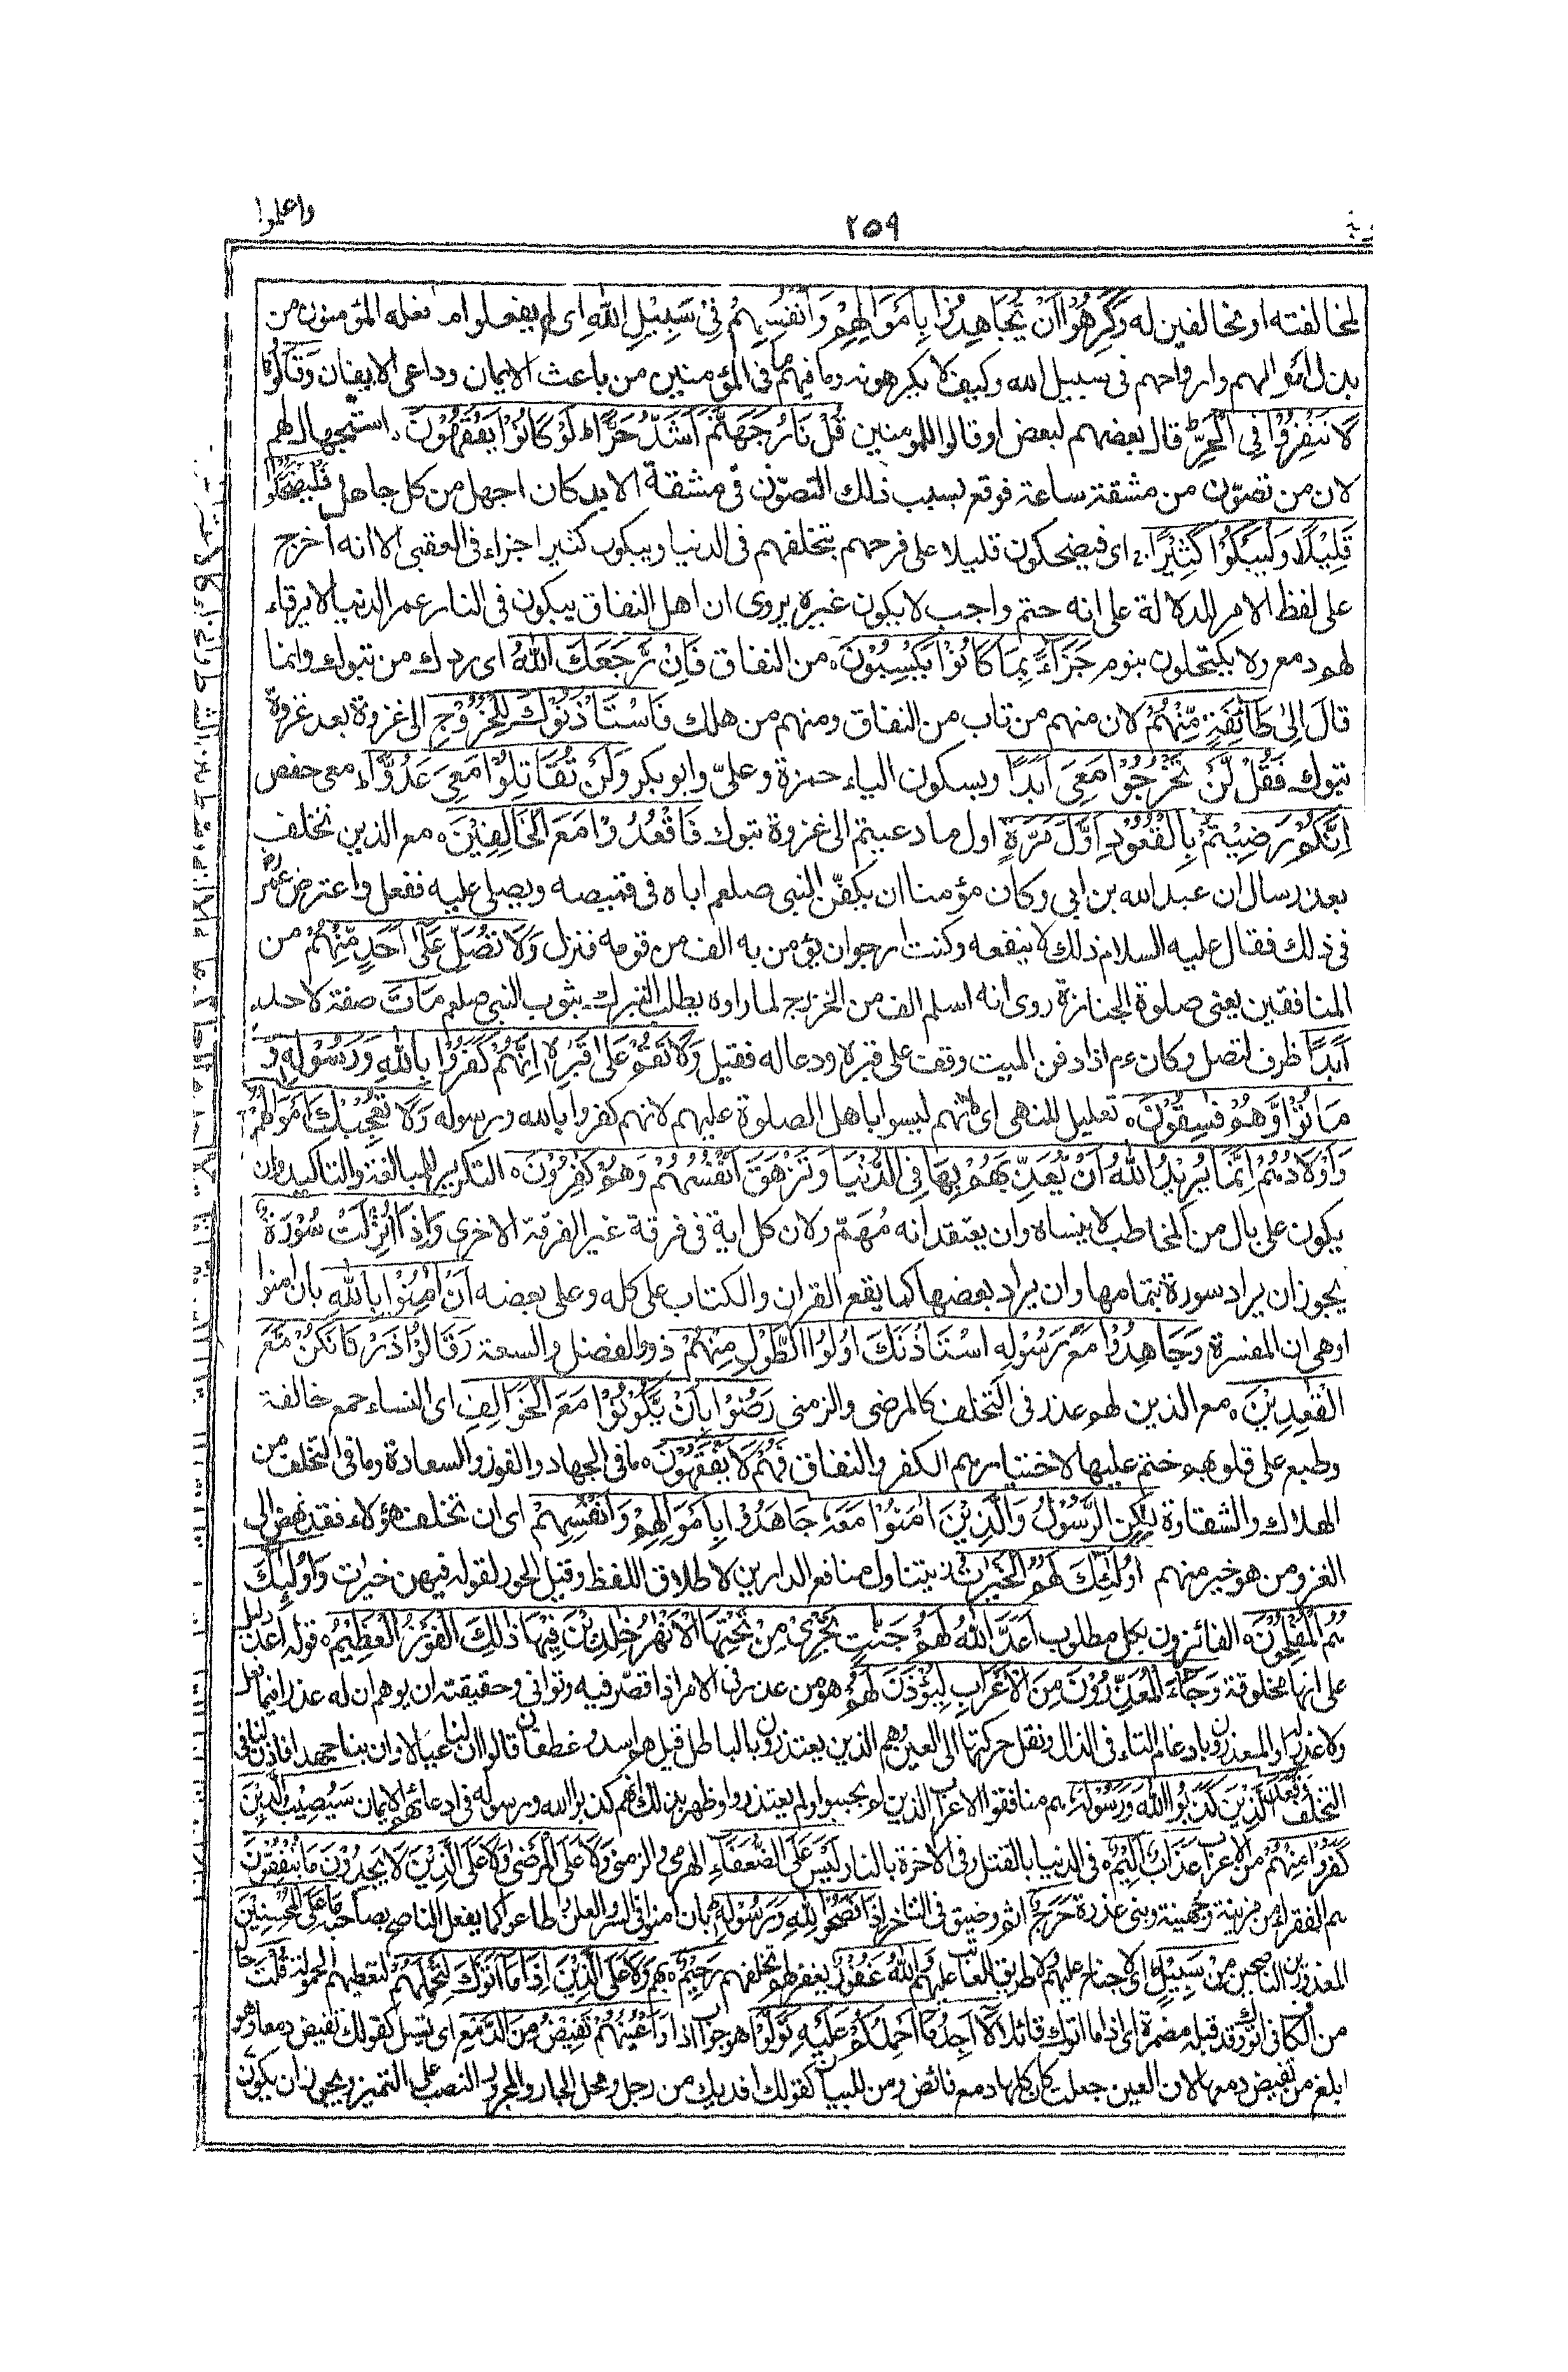 واعلموا
٢٥٩
لمخالفته او مخالفين له وَكَرِهُوْا اَنْ يُّجَاهِدُوْا بِاَمْوَالِهِمْ وَاَنْفُسِهِمْ فِيْ سَبِيْلِ اللّٰهِ اى لم يفعلوا ما فعله المؤمنون من
بذل اموالهم وارواحهم فى سبيل الله وكيف لا يكرهونه وما فيهم ما فى المؤمنين من باعث الايمان وداعى الايقان وَقَالُوْا
لَا تَنْفِرُوْا فِى الْحَرِّ قال بعضهم لبعض او قالوا للمومنين قُلْ نَارُ جَهَنَّمَ اَشَدُّ حَرًّا ط لَوْ كَانُوْا يَفْقَهُوْنَ ه استجهال لهم
لان من تصوّن من مشقة ساعة فوقع بسبب ذلك التصوّن فى مشقة الابد كان اجهل من كل جاهل فَلْيَضْحَكُوْا
قَلِيْلًا وَلْيَبْكُوْا كَثِيْرًا ج اى فيضحكون قليلا على فرحهم بتخلفهم فى الدنيا ويبكون كثيرا جزاء فى العقبى الا انه اخرج
على لفظ الامر للدلالة على انه حتم واجب لا يكون غيره يروى ان اهل النفاق يبكون فى النار عمر الدنيا لا يرقاء
لهم دمع ولا يكتحلون بنوم جَزَآءً بِمَا كَانُوْا يَكْسِبُوْنَ ه من النفاق فَاِنْ رَّجَعَكَ اللّٰهُ اى ردك من تبوك وانما
قال اِلٰى طَآئِفَةٍ مِّنْهُمْ لان منهم من تاب من النفاق ومنهم من هلك فَاسْتَاْذَنُوْكَ لِلْخُرُوْجِ الى غزوة بعد غزوة
تبوك فَقُلْ لَّنْ تَخْرُجُوْا مَعِىَ اَبَدًا وبسكون الياء حمزة وعلىّ وابو بكر وَلَنْ تُقَاتِلُوْا مَعِىَ عَدُوًّا ء معى حفص
اِنَّكُمْ رَضِيْتُمْ بِالْقُعُوْدِ اَوَّلَ مَرَّةٍ اول ما دعيتم الى غزوة تبوك فَاقْعُدُوْا مَعَ الْخَالِفِيْنَ ه مع الذين تخلف
بعد رسال ان عبد الله بن ابى وكان مؤمنا ان يكفّن النبى صلعم اباه فى قميصه ويصلى عليه ففعل واعترض عمر رض
فى ذلك فقال عليه السلام ذلك لا ينفعه وكنت ارجو ان يؤمن به الف من قومه فنزل وَلَا تُصَلِّ عَلٰى اَحَدٍ مِّنْهُمْ من
المنافقين يعنى صلوة الجنازة روى انه اسلم الف من الخزرج لما راوه يطلب التبرك بثوب النبى صلعم مَاتَ صفة لاحد
اَبَدًا ظرف لتصل وكان عم اذا دفن الميت وقف على قبره ودعا له فقيل وَلَا تَقُمْ عَلٰى قَبْرِهٖ اِنَّهُمْ كَفَرُوْا بِاللّٰهِ وَرَسُوْلِهٖ وَ
مَاتُوْا وَهُمْ فٰسِقُوْنَ ه تعليل للنهى اى لانهم ليسوا باهل الصلوة عليهم لانهم كفروا بالله ورسوله وَلَا تُعْجِبْكَ اَمْوَالُهُمْ
وَاَوْلَادُهُمْ اِنَّمَا يُرِيْدُ اللّٰهُ اَنْ يُّعَذِّبَهُمْ بِهَا فِى الدُّنْيَا وَتَزْهَقَ اَنْفُسُهُمْ وَهُمْ كٰفِرُوْنَ ه التكرير للمبالغة والتاكيد وان
يكون على بال من المخاطب لا ينساه وان يعتقد انه مُهَمّ ولان كل اية فى فرقة غير الفرقة الاخرى وَاِذَا اُنْزِلَتْ سُوْرَةٌ
يجوز ان يراد سورة بتمامها وان يراد بعضها كما يقع القران والكتاب على كله وعلى بعضه اَنْ اٰمِنُوْا بِاللّٰهِ بان امنوا
او هى ان المفسرة وَجَاهِدُوْا مَعَ رَسُوْلِهِ اسْتَاْذَنَكَ اُولُوا الطَّوْلِ مِنْهُمْ ذوو الفضل والسعة وَقَالُوْا ذَرْنَا نَكُنْ مَّعَ
الْقٰعِدِيْنَ ه مع الذين لهم عذر فى التخلف كالمرضى والزمنى رَضُوْا بِاَنْ يَّكُوْنُوْا مَعَ الْخَوَالِفِ اى النساء جمع خالفة
وطبع على قلوبهم ختم عليها لاختيارهم الكفر والنفاق فَهُمْ لَا يَفْقَهُوْنَ ه ما فى الجهاد والفوز والسعادة وما فى التخلف من
الهلاك والشقاوة لٰكِنِ الرَّسُوْلُ وَالَّذِيْنَ اٰمَنُوْا مَعَهٗ جَاهَدُوْا بِاَمْوَالِهِمْ وَاَنْفُسِهِمْ اى ان تخلف هؤلاء فقد نهض الى
الغزو من هو خير منهم اُولٰٓئِكَ لَهُمُ الْخَيْرٰتُ تتناول منافع الدارين لاطلاق اللفظ وقيل الحور لقوله فيهن خيرٰت وَاُولٰٓئِكَ
هُمُ الْمُفْلِحُوْنَ ه الفائزون بكل مطلوب اَعَدَّ اللّٰهُ لَهُمْ جَنّٰتٍ تَجْرِىْ مِنْ تَحْتِهَا الْاَنْهٰرُ خٰلِدِيْنَ فِيْهَا ذٰلِكَ الْفَوْزُ الْعَظِيْمُ ه قوله اعد دليل
على انها مخلوقة وَجَآءَ الْمُعَذِّرُوْنَ مِنَ الْاَعْرَابِ لِيُؤْذَنَ لَهُمْ هو من عذر فى الامر اذا قصّر فيه وتوانى وحقيقته ان يوهم ان له عذرا فيما فعل
ولا عذر له او المعتذرون بادغام التاء فى الذال ونقل حركتها الى العين وهم الذين يعتذرون بالباطل قيل هم اسد وغطفان قالوا ان لنا عيالا وان بنا جهدا فاذن لنا فى
التخلف وَقَعَدَ الَّذِيْنَ كَذَبُوا اللّٰهَ وَرَسُوْلَهٗ هم منافقوا الاعراب الذين لم يجيبوا ولم يعتذروا وظهر بذلك انهم كذبوا الله ورسوله فى ادعائهم الايمان سَيُصِيْبُ الَّذِيْنَ
كَفَرُوْا مِنْهُمْ من الاعراب عَذَابٌ اَلِيْمٌ ه فى الدنيا بالقتل وفى الاخرة بالنار لَيْسَ عَلَى الضُّعَفَآءِ الهرمى والزمنى وَلَا عَلَى الْمَرْضٰى وَلَا عَلَى الَّذِيْنَ لَا يَجِدُوْنَ مَا يُنْفِقُوْنَ
هم الفقراء من مزينة وجهينة وبنى عذرة حَرَجٌ اثم وضيق فى التاخر اِذَا نَصَحُوْا لِلّٰهِ وَرَسُوْلِهٖ بان امنوا فى السر والعلن واطاعوا كما يفعل الناصح بصاحبه مَا عَلَى الْمُحْسِنِيْنَ
المعذورين الناصحين مِنْ سَبِيْلٍ اى لا جناح عليهم ولا طريق للعتاب عليهم وَاللّٰهُ غَفُوْرٌ يغفر لهم تخلفهم رَحِيْمٌ ه بهم وَلَا عَلَى الَّذِيْنَ اِذَا مَا اَتَوْكَ لِتَحْمِلَهُمْ لتعطيهم الحمولة قُلْتَ حال
من الكاف فى اتوك وقد قبله مضمرة اى اذا ما اتوك قائلا لَا اَجِدُ مَا اَحْمِلُكُمْ عَلَيْهِ تَوَلَّوْا هو جواب اذا وَاَعْيُنُهُمْ تَفِيْضُ مِنَ الدَّمْعِ اى تسيل كقولك تفيض دمعا وهو
ابلغ من تفيض دمعها لان العين جعلت كان كلها دمع فائض ومن للبيان كقولك افديك من رجل ومحل الجار والمجرور النصب على التميز ويجوز ان يكون